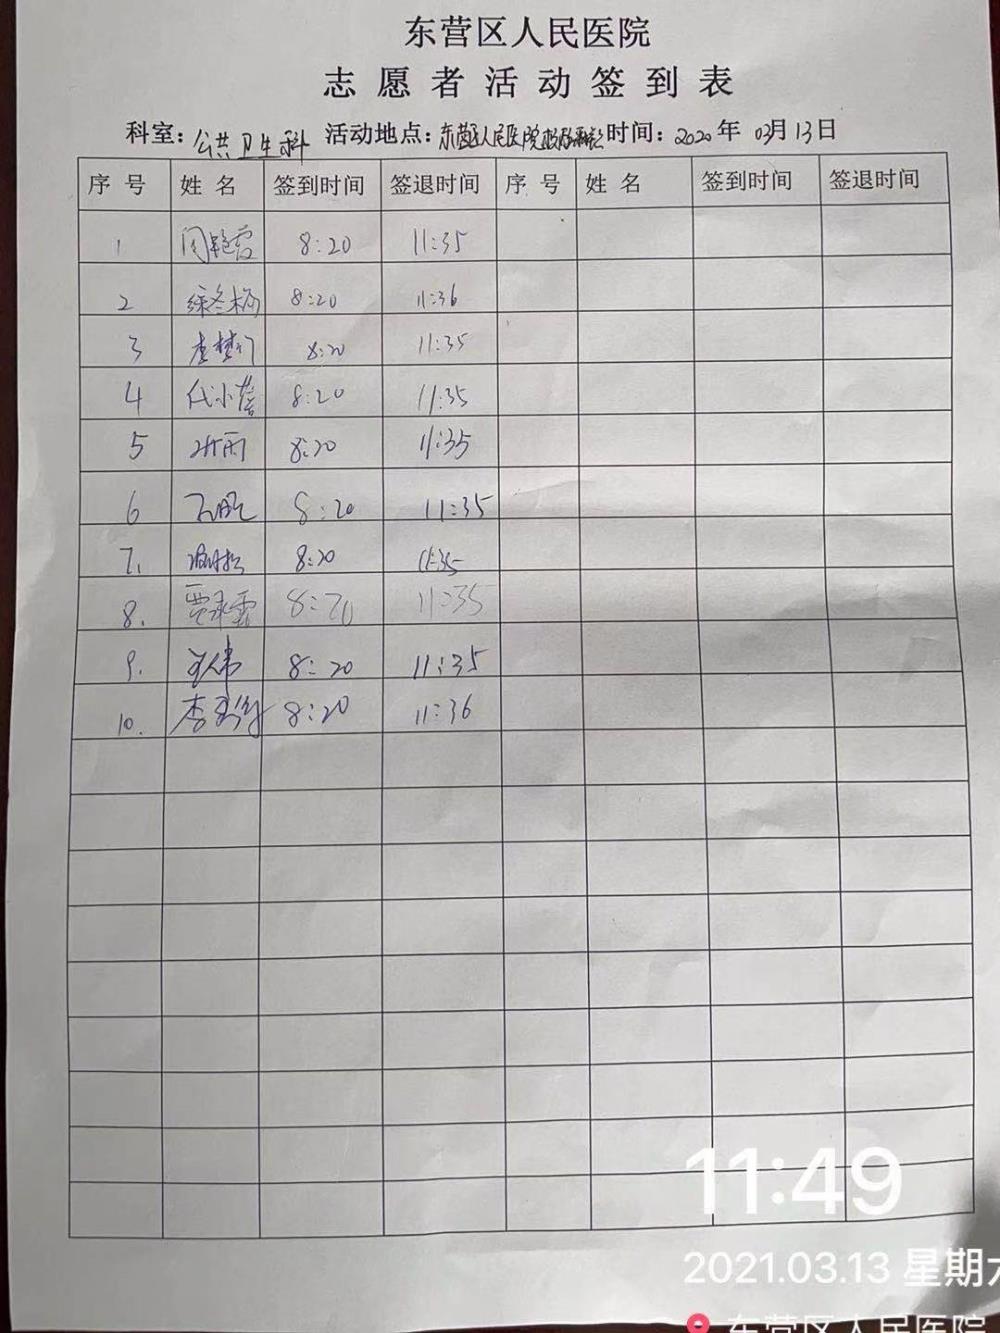 东营区人民医院
志愿者活动签到表
科室：公共卫生科 活动地点：东营区人民医院 时间：2020年 03月13日
序号 姓名 签到时间 签退时间 序号 姓名 签到时间 签退时间
1 闫艳霞 8:20 11:35
2 8:20 11:36
3 8:20 11:35
4 代小蓓 8:20 11:35
5 8:20 11:35
6 8:20 11:35
7. 8:20 11:35
8. 贾永霞 8:20 11:35
9. 8:20 11:35
10. 8:20 11:36
11:49
2021.03.13 星期六
东营区人民医院